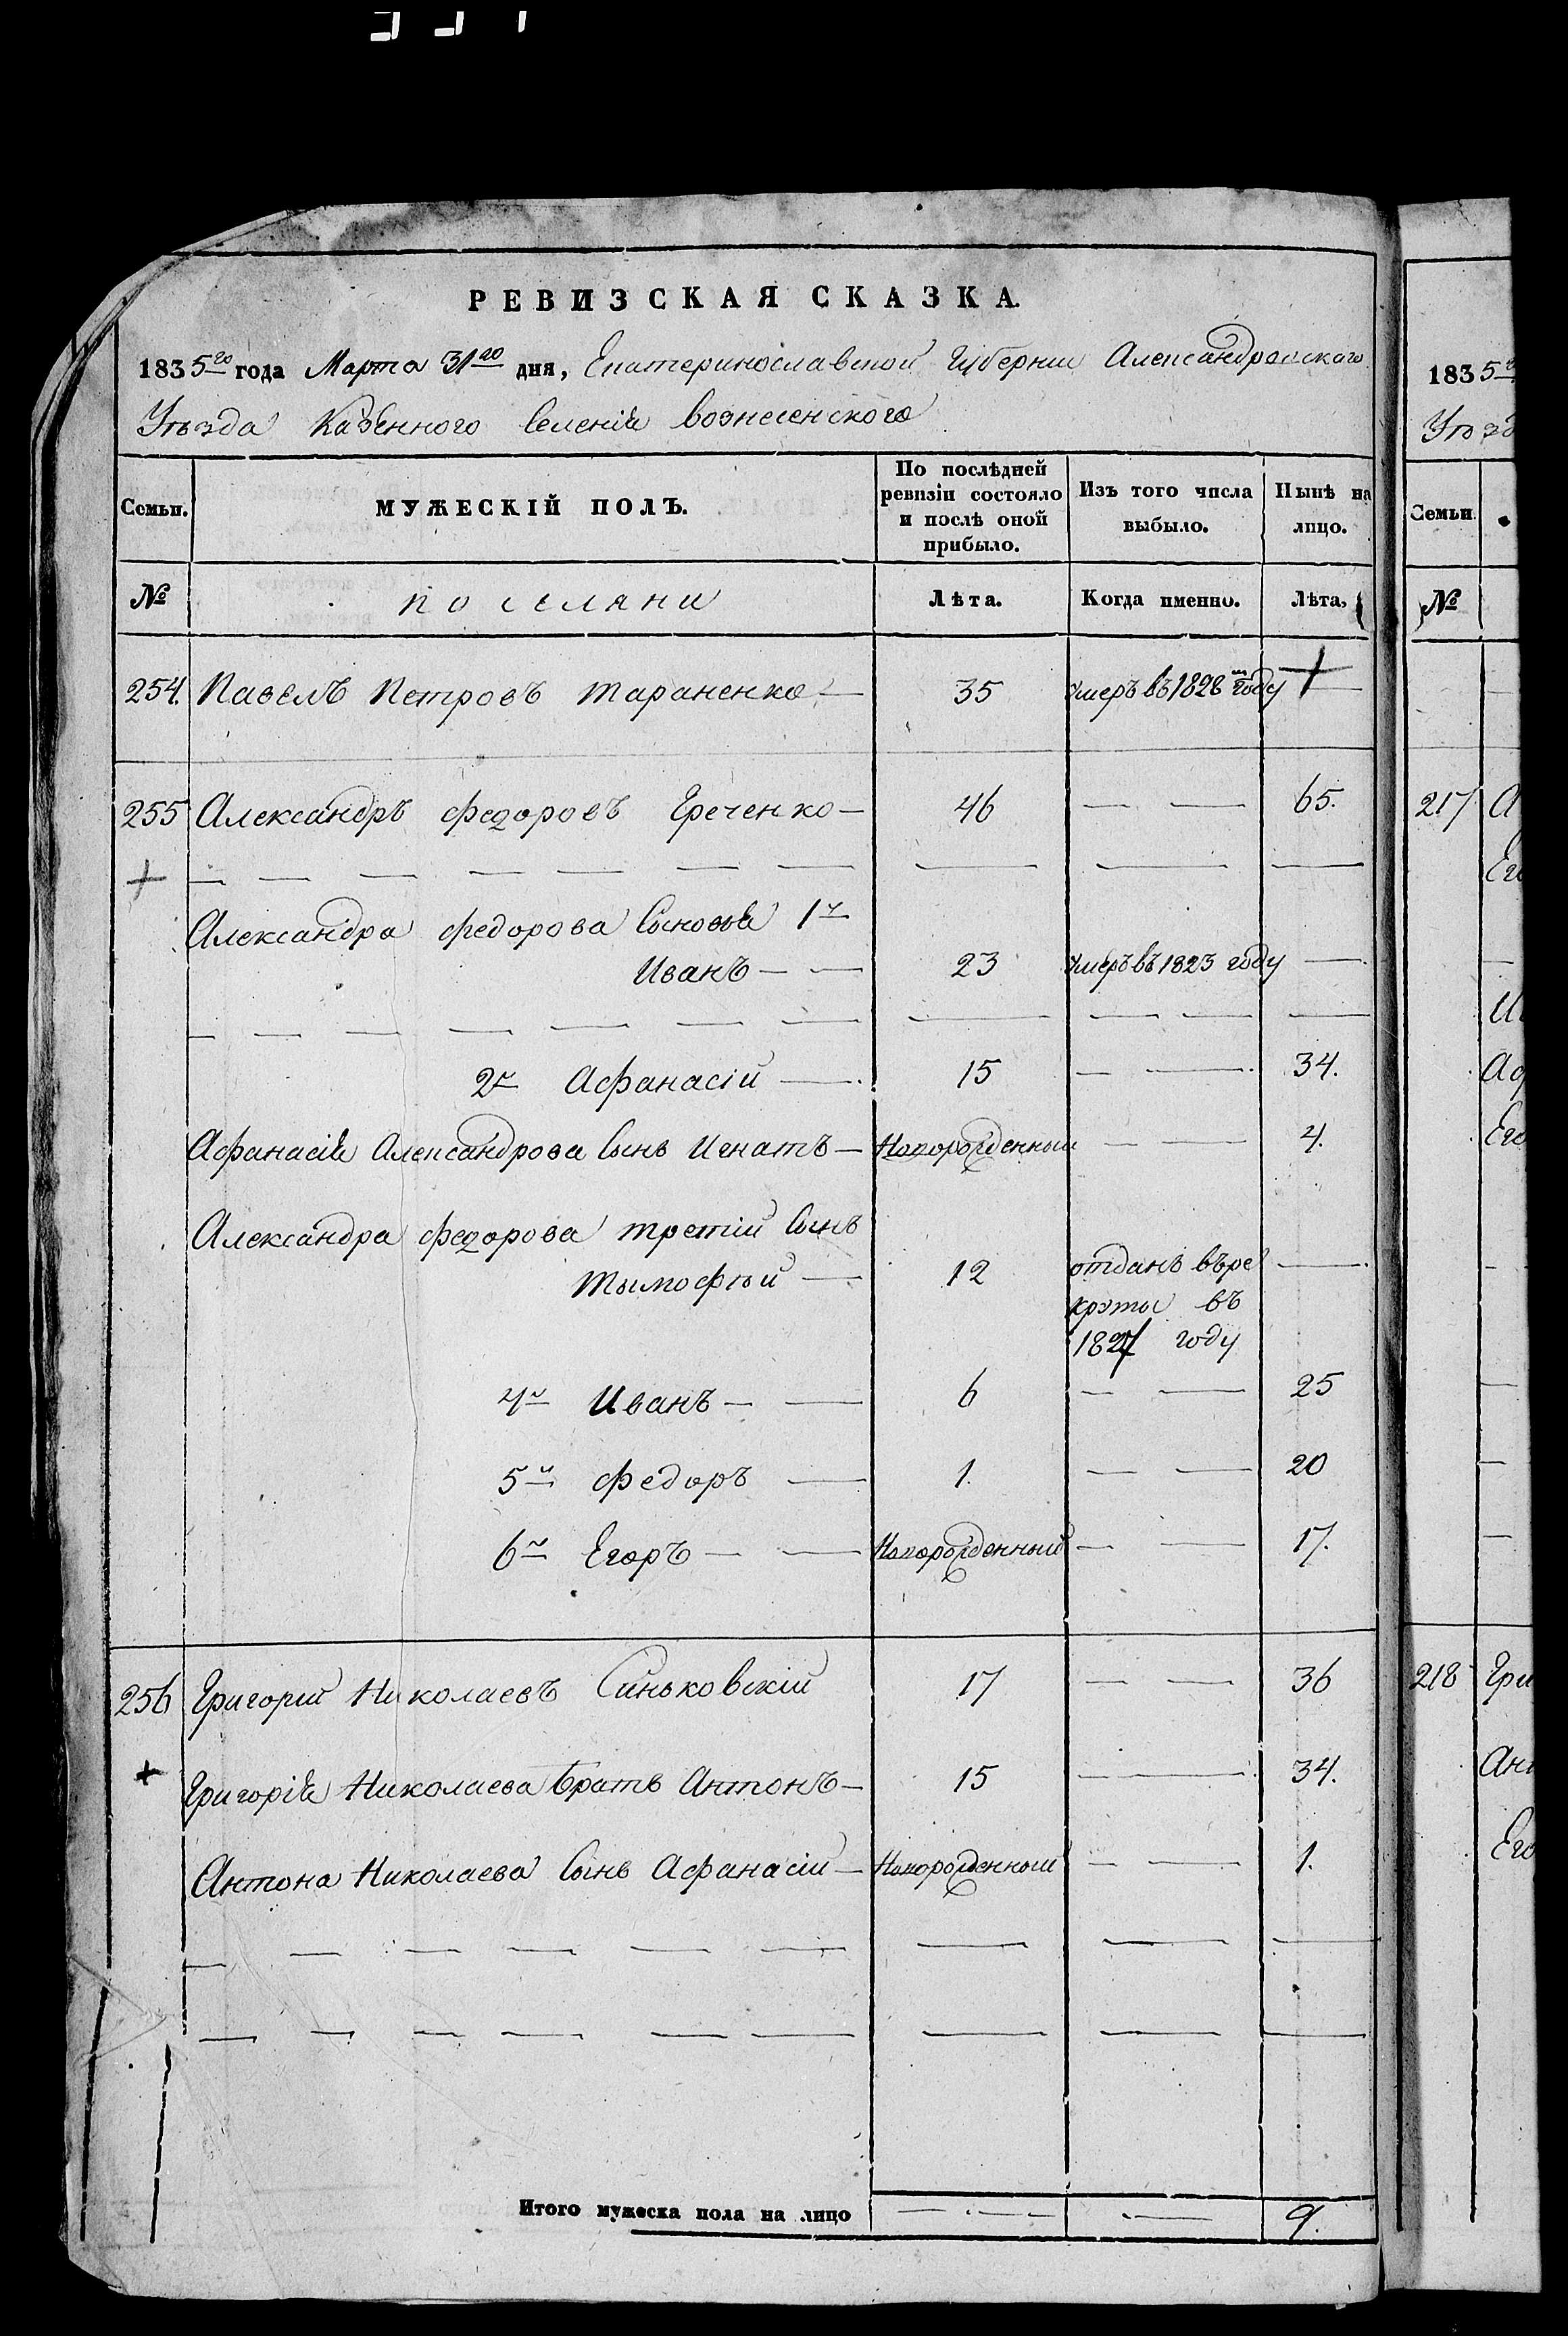 РЕВИЗСКАЯ СКАЗКА.
1835го года Марта 31го дня, Екатеринославской Губернии Александровского
Уѣзда Казенного Селенія Вознесенского
Семьи. МУЖЕСКІЙ ПОЛЪ. По послѣдней ревизіи состояло и послѣ оной прибыло. Изъ того числа выбыло. Нынѣ на лицо.
№ поселяни Лѣта. Когда именно. Лѣта,
254. Павелъ Петровъ Тараненко — 35 умеръ въ 1828 году —
255 Александръ Федоровъ Греченко — 46 — — 65.
Александра Федорова Сыновья 1й
Иванъ — — 23 умеръ въ 1823 году —
2й Афанасій — 15 — — 34.
Афанасія Александрова Сынъ Игнатъ — Новорожденный — — 4.
Александра Федорова третій Сынъ
Тымофѣй — 12 отданъ въ ре —
крэты въ
1827 году
4й Иванъ — — 6 — — 25
5й Федоръ — 1. — — 20
6й Егоръ — — Новорожденный — — 17.
256 Григорій Николаевъ Синьковскій 17 — — 36
Григорія Николаева братъ Антонъ — 15 — — 34.
Антона Николаева Сынъ Афанасій — Новорожденный — — 1.
Итого мужеска пола на лицо — — — 9.
1835
Уѣзд
Семьи.
№
217 А
Его
Аф
Его
218 Гри
Ан
Его